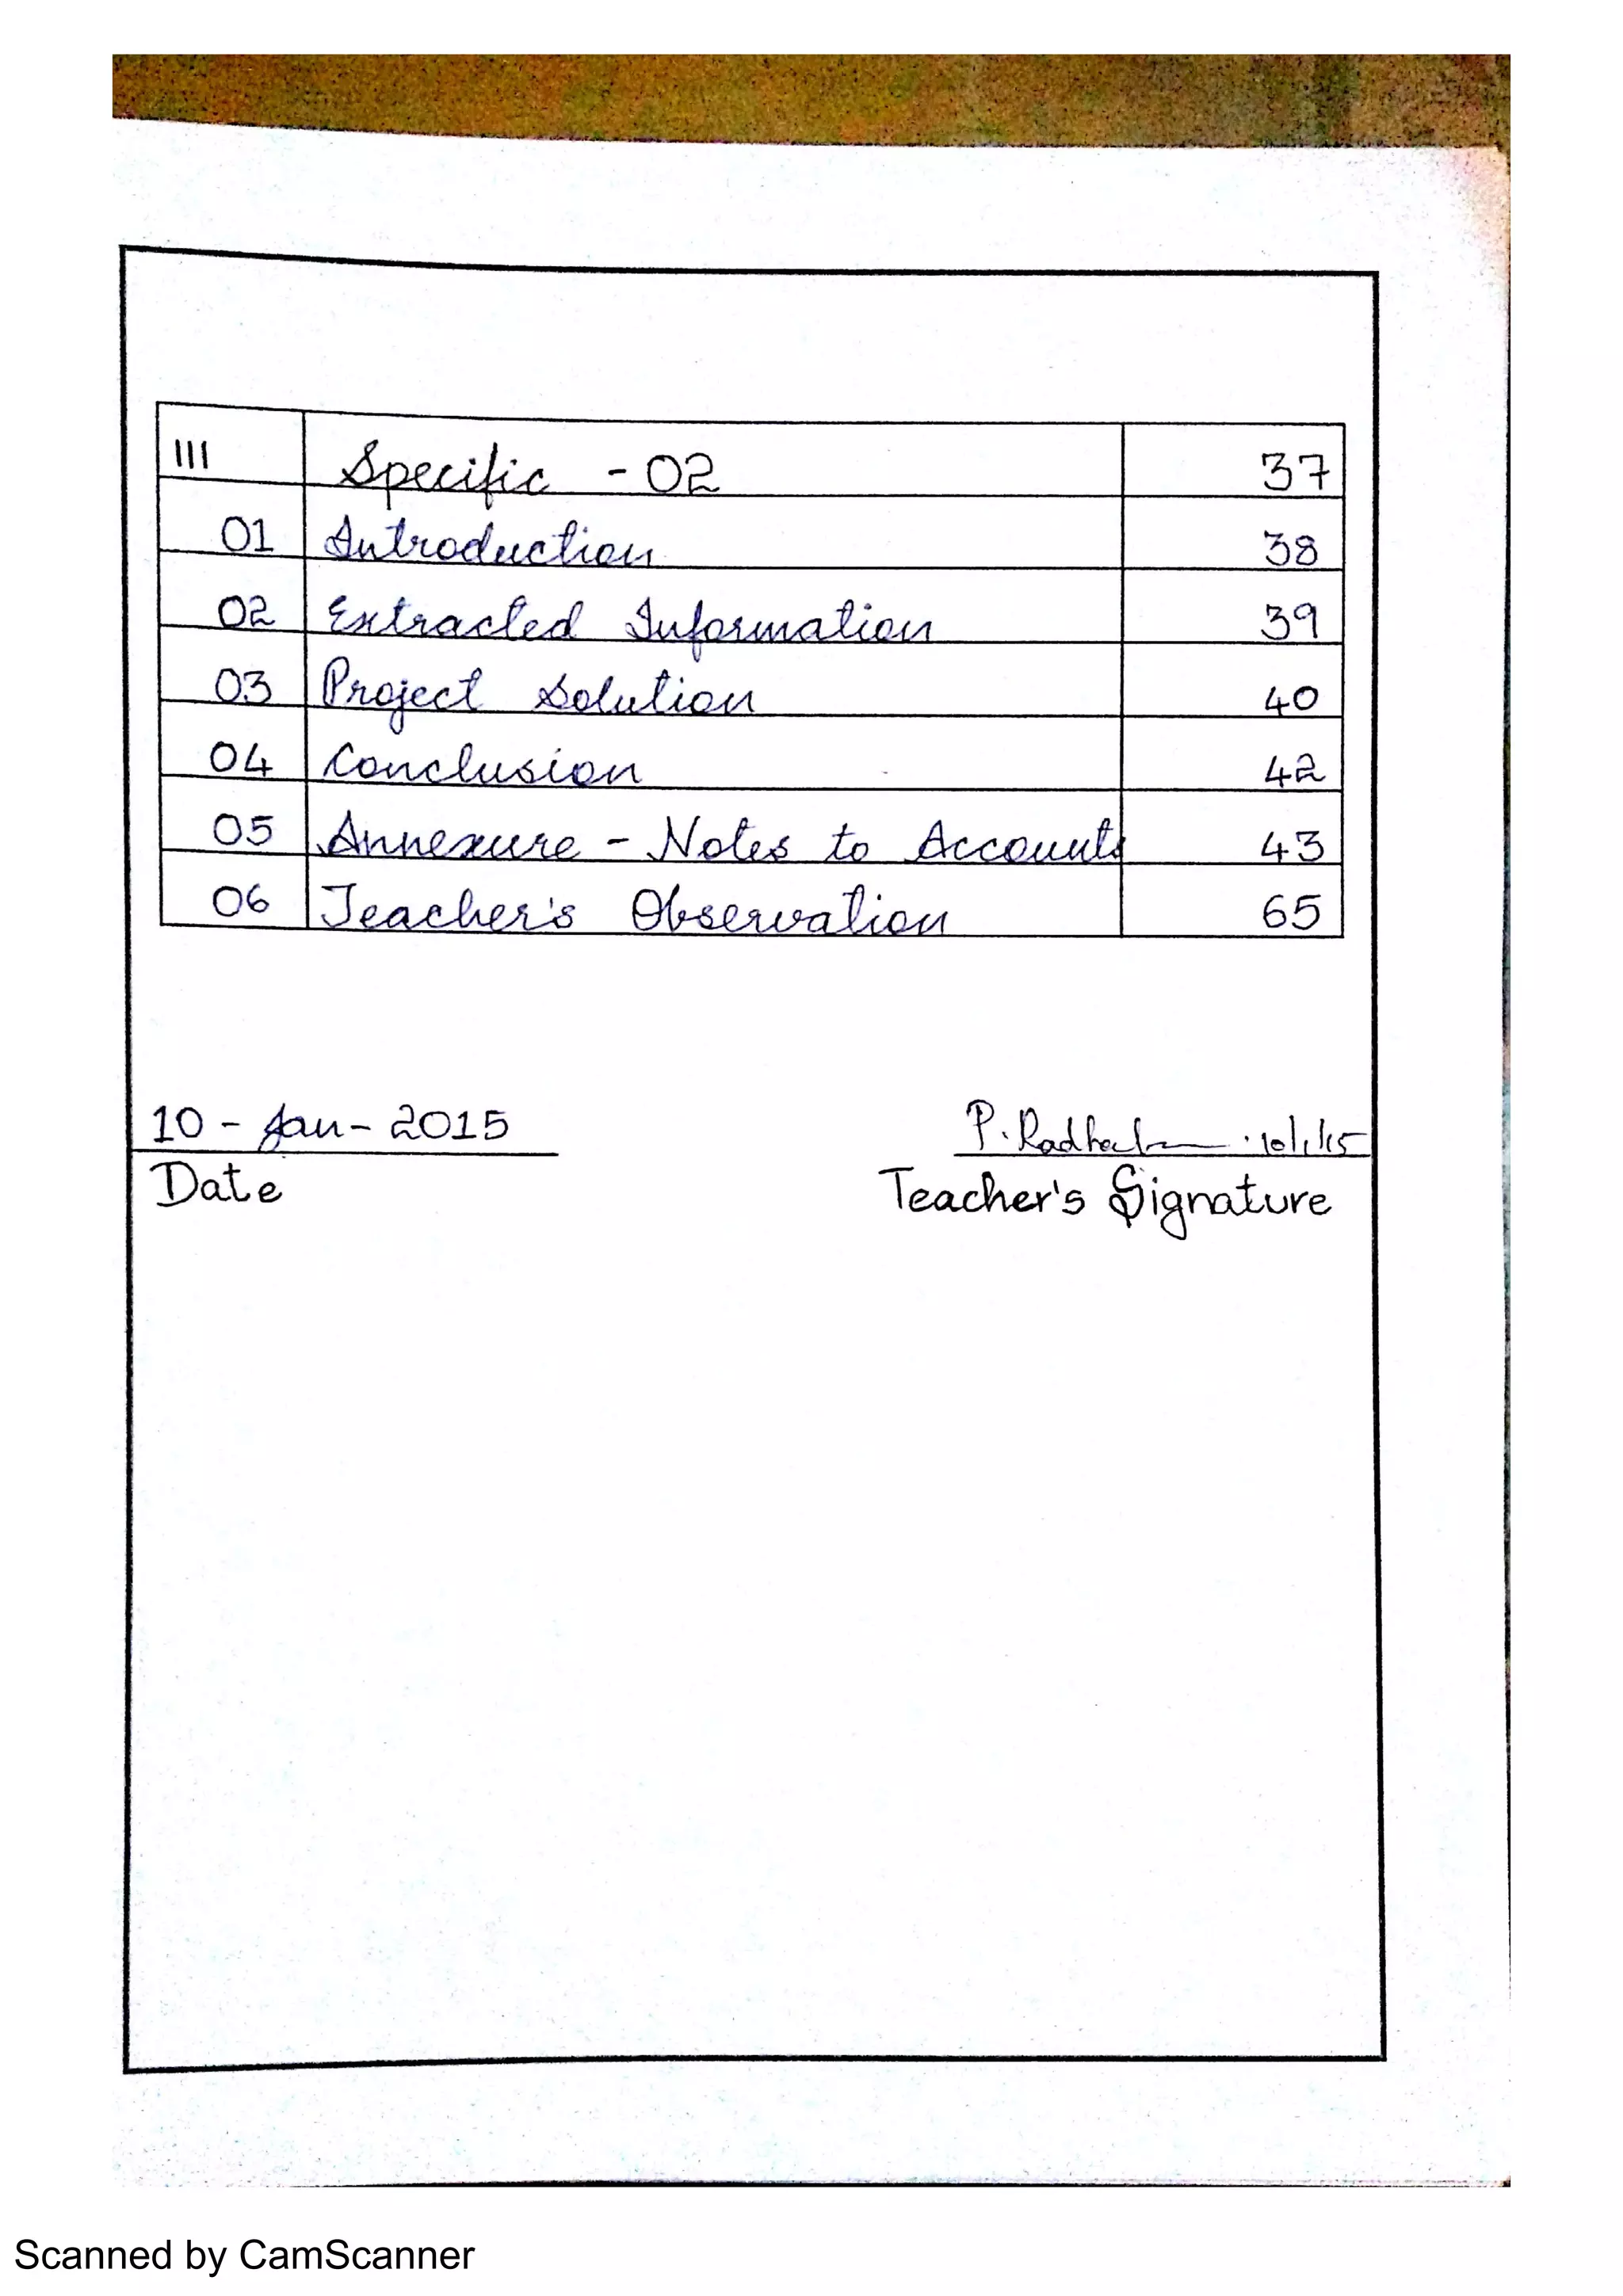 III Specific - 02 37
01 Introduction 38
02 Extracted Information 39
03 Project Solution 40
04 Conclusion 42
05 Annexure - Notes to Accounts 43
06 Teacher's Observation 65
10 - Jan - 2015 P. 10/1/15
Date Teacher's Signature
Scanned by CamScanner